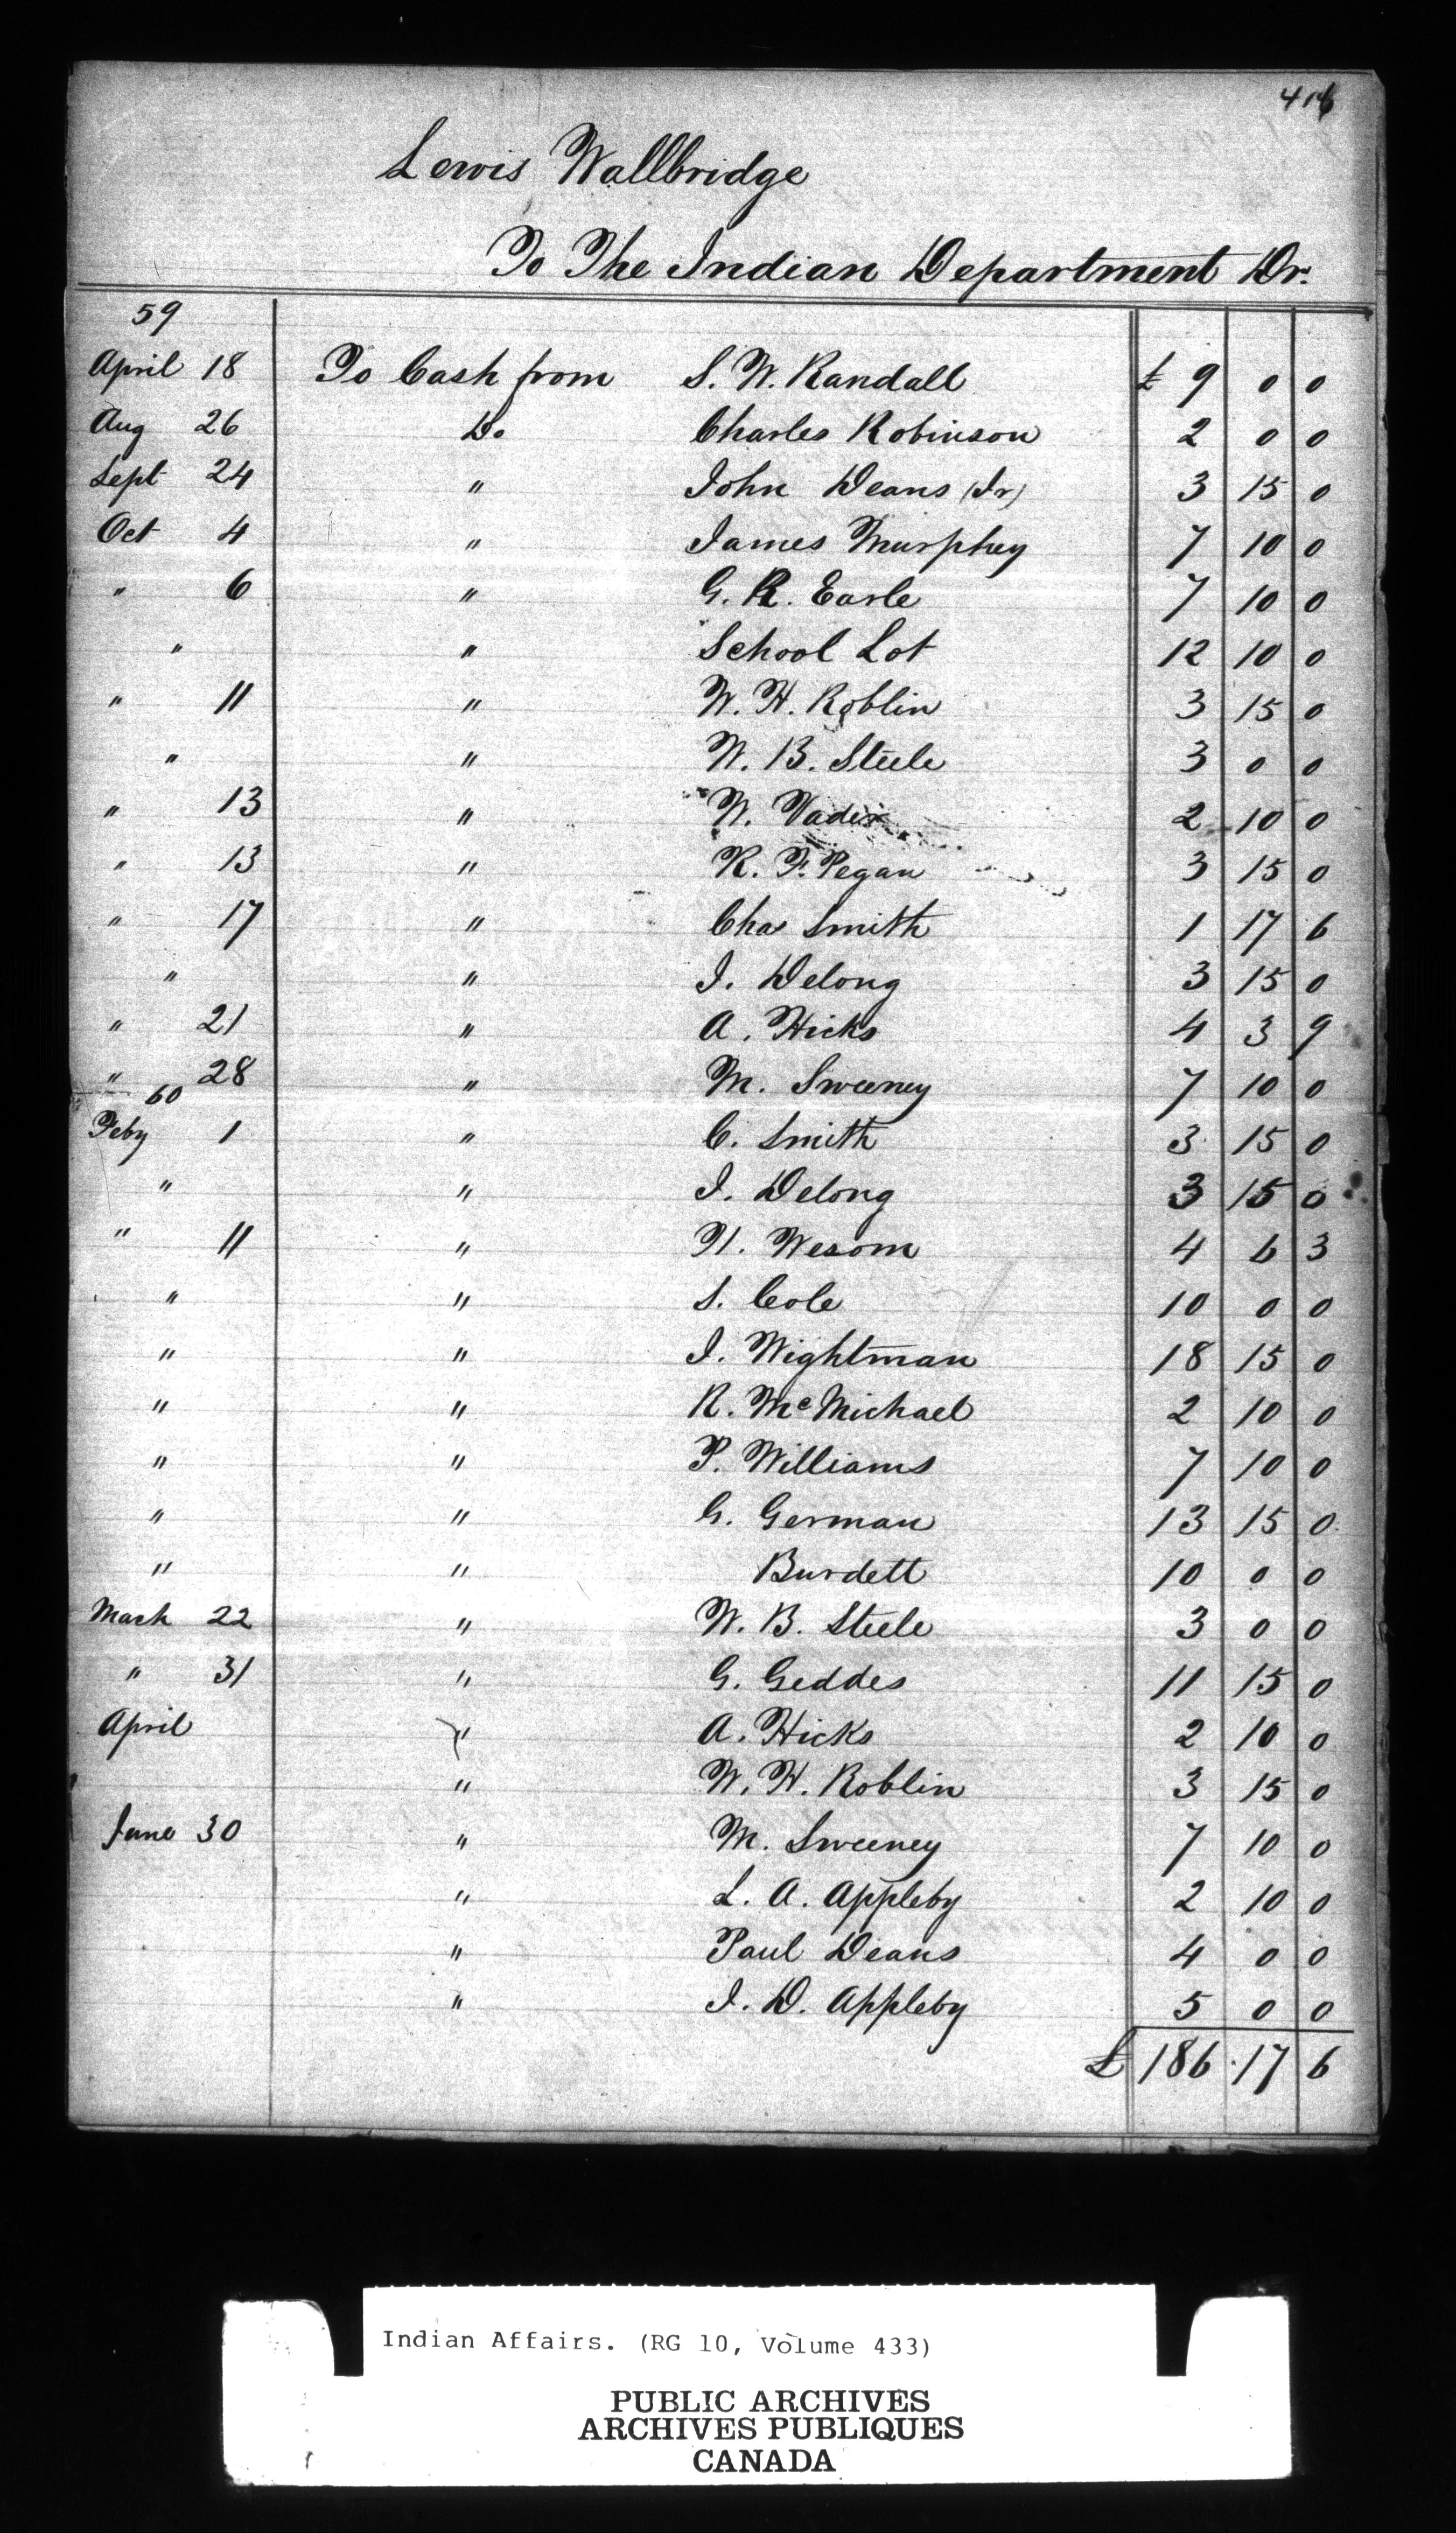 Lewis Wallbridge
To The Indian Department Dr.
59
April 18 To Cash from S. W. Randall £ 9 0 0
Aug 26 Do Charles Robinson 2 0 0
Sept 24 " John Deans (Jr) 3 15 0
Oct 4 " James Murphey 7 10 0
" 6 " G. R. Earle 7 10 0
" " School Lot 12 10 0
" 11 " W. H. Roblin 3 15 0
" " W. B. Steele 3 0 0
" 13 " W. Vader 2 10 0
" 13 " R. F. Pegan 3 15 0
" 17 " Chas Smith 1 17 6
" " J. Delong 3 15 0
" 21 " A. Hicks 4 3 9
" 28 " M. Sweeney 7 10 0
60
Feby 1 " C. Smith 3 15 0
" " J. Delong 3 15 0
" 11 " Wesom 4 6 3
" " S. Cole 10 0 0
" " J. Wightman 18 15 0
" " R. McMichael 2 10 0
" " P. Williams 7 10 0
" " G. German 13 15 0
" " Burdett 10 0 0
Mach 22 " W. B. Steele 3 0 0
" 31 " G. Geddes 11 15 0
April " A. Hicks 2 10 0
" W. H. Roblin 3 15 0
June 30 " M. Sweeney 7 10 0
" L. A. Appleby 2 10 0
" Paul Deans 4 0 0
" J. D. Appleby 5 0 0
£ 186 17 6
Indian Affairs. (RG 10, Volume 433)
PUBLIC ARCHIVES
ARCHIVES PUBLIQUES
CANADA